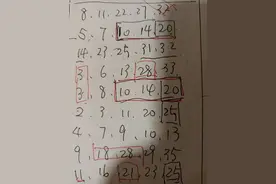 8.11.22.27.32
5.7.10 14 20
14.23.25.31.32
3.6.13 28.33
3.8.10.14.20
2.3.11.20.25
4.7.9.10.13
9.18.28.29.35
11.16.21.23.25